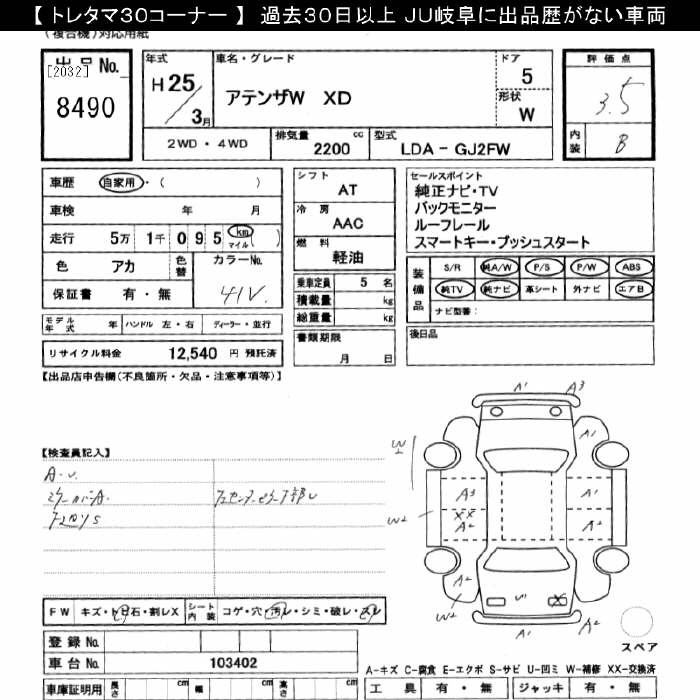 【 トレタマ30コーナー 】 過去30日以上 JU岐阜に出品歴がない車両
(複合機)対応用紙
出品 No.
[2032]
8490
年式
H 25
3月
車名・グレード
アテンザW XD
ドア
5
形状
W
評価点
3.5
内装
B
2WD ・ 4WD
排気量 cc
2200
型式
LDA - GJ2FW
車歴 自家用・( )
車検 年 月
走行 5万 1千 0 9 5 km マイル( )
色 アカ 色替 カラーNo.
保証書 有 ・ 無 41V.
モデル年式 年 ハンドル 左・右 ディーラー・並行
リサイクル料金 12,540 円 預託済
シフト
AT
冷房
AAC
燃料
軽油
乗車定員 5 名
積載量 kg
総重量 kg
書類期限
月 日
セールスポイント
純正ナビ・TV
バックモニター
ルーフレール
スマートキー・プッシュスタート
装備品
S/R 純A/W P/S P/W ABS
純TV 純ナビ 革シート 外ナビ エアB
ナビ型番:
後日品
【出品店申告欄(不良箇所・欠品・注意事項等)】
【検査員記入】
A・U.
A1 A3
W2
A1
A3 A1
W2 XX A2 A2
A2
W2
U1 X
A1 A2
スペア
FW キズ・トビ石・割レX シート内装 コゲ・穴・汚レ・シミ・破レ・スレ
登録 No.
車台 No. 103402
車庫証明用 長さ cm 幅 cm 高さ cm
A-キズ C-腐食 E-エクボ S-サビ U-凹ミ W-補修 XX-交換済
工具 有 ・ 無 ジャッキ 有 ・ 無